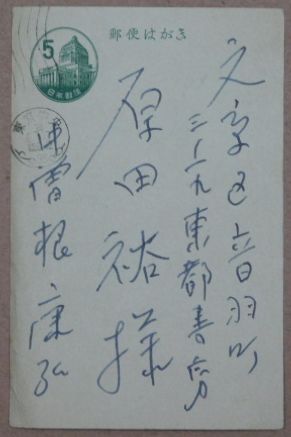 郵便はがき
5
日本郵便
文京区音羽町
三ノ一九東都書房
原田裕様
中曾根康弘